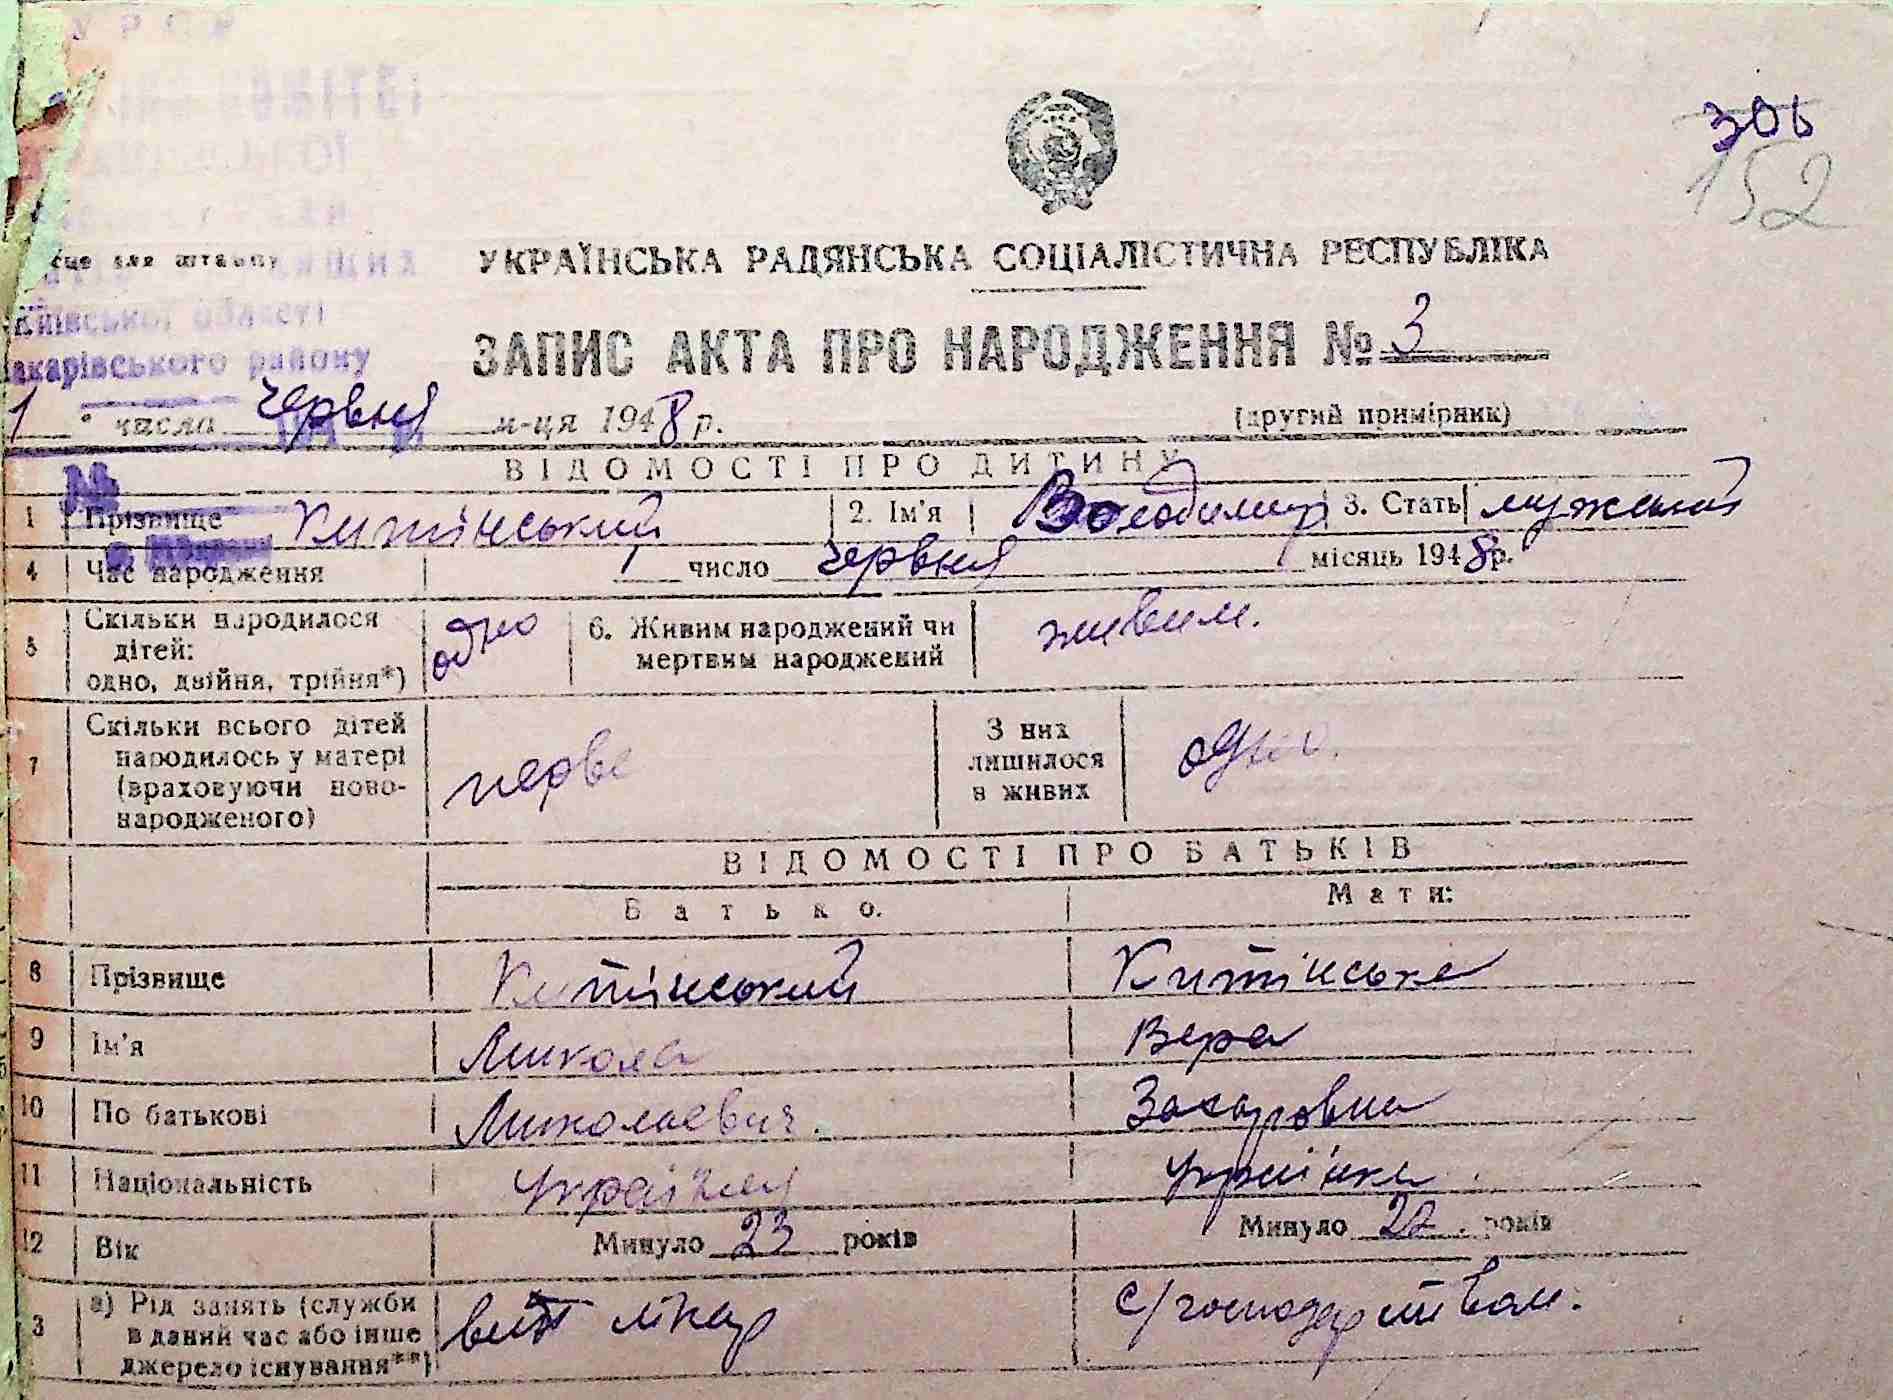 У Р С Р
КОМІТЕТ
306
152
сце для штампу
УКРАЇНСЬКА РАДЯНСЬКА СОЦІАЛІСТИЧНА РЕСПУБЛІКА
Київської області
акарівського району
ЗАПИС АКТА ПРО НАРОДЖЕННЯ № 3
1 " числа червня м-ця 1948 р.
(другий примірник)
№
ВІДОМОСТІ ПРО ДИТИНУ
1 Прізвище Китінський 2. Ім'я Володимир 3. Стать мужський
4 Час народження 1 число червня місяць 1948 р.
5 Скільки народилося дітей: одно, двійня, трійня*) одно 6. Живим народжений чи мертвим народжений живим.
7 Скільки всього дітей народилось у матері (враховуючи ново-народженого) перве З них лишилося в живих одно.
ВІДОМОСТІ ПРО БАТЬКІВ
Батько. Мати:
8 Прізвище Китінський Китінська
9 Ім'я Микола Вера
10 По батькові Миколаевич. Захаровна
11 Національність українец українка
12 Вік Минуло 23 років Минуло 22 років
3 а) Рід занять (служби в даний час або інше джерело існування**) вет лікар с/господарством.